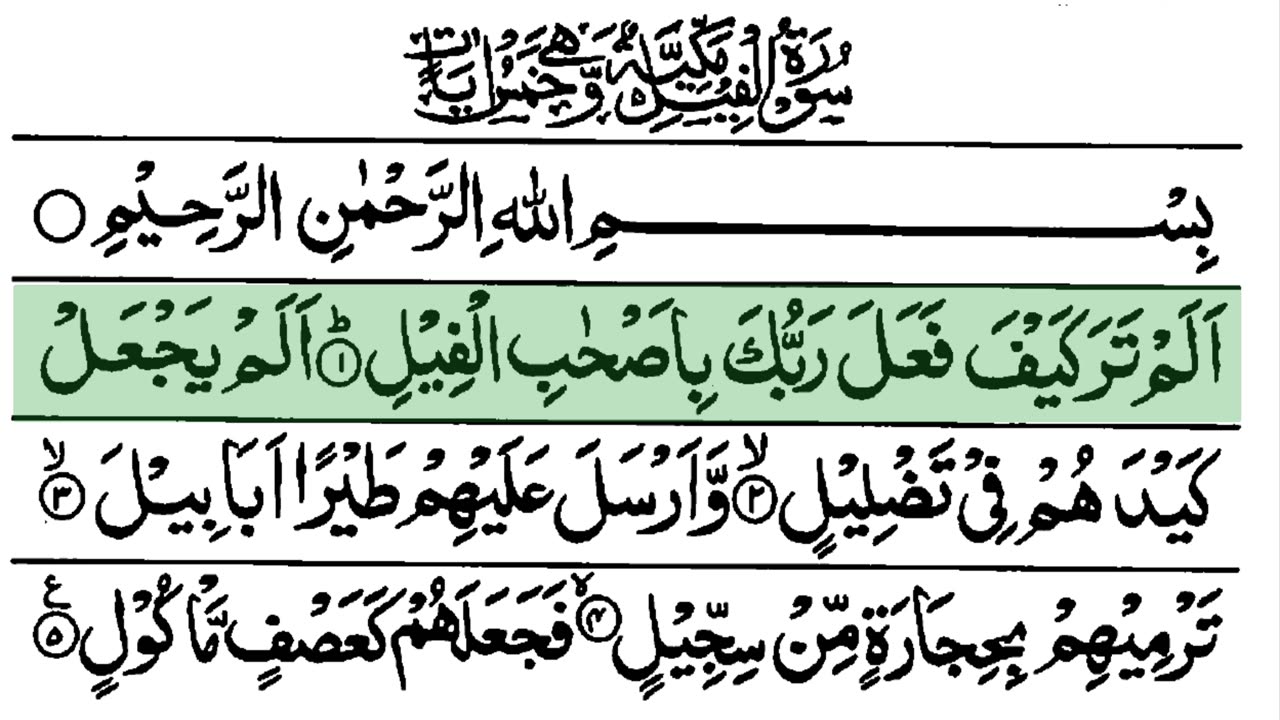 سُوْرَةُ الْفِيْلِ مَكِّيَّةٌ وَّهِيَ خَمْسُ اٰيَاتٍ
بِسْمِ اللّٰهِ الرَّحْمٰنِ الرَّحِيْمِ ○
اَلَمْ تَرَ كَيْفَ فَعَلَ رَبُّكَ بِاَصْحٰبِ الْفِيْلِ ؕ۝۱ اَلَمْ يَجْعَلْ
كَيْدَهُمْ فِيْ تَضْلِيْلٍ ۙ۝۲ وَّاَرْسَلَ عَلَيْهِمْ طَيْرًا اَبَابِيْلَ ۙ۝۳
تَرْمِيْهِمْ بِحِجَارَةٍ مِّنْ سِجِّيْلٍ ۙ۝۴ فَجَعَلَهُمْ كَعَصْفٍ مَّاْكُوْلٍ ۝۵ ع